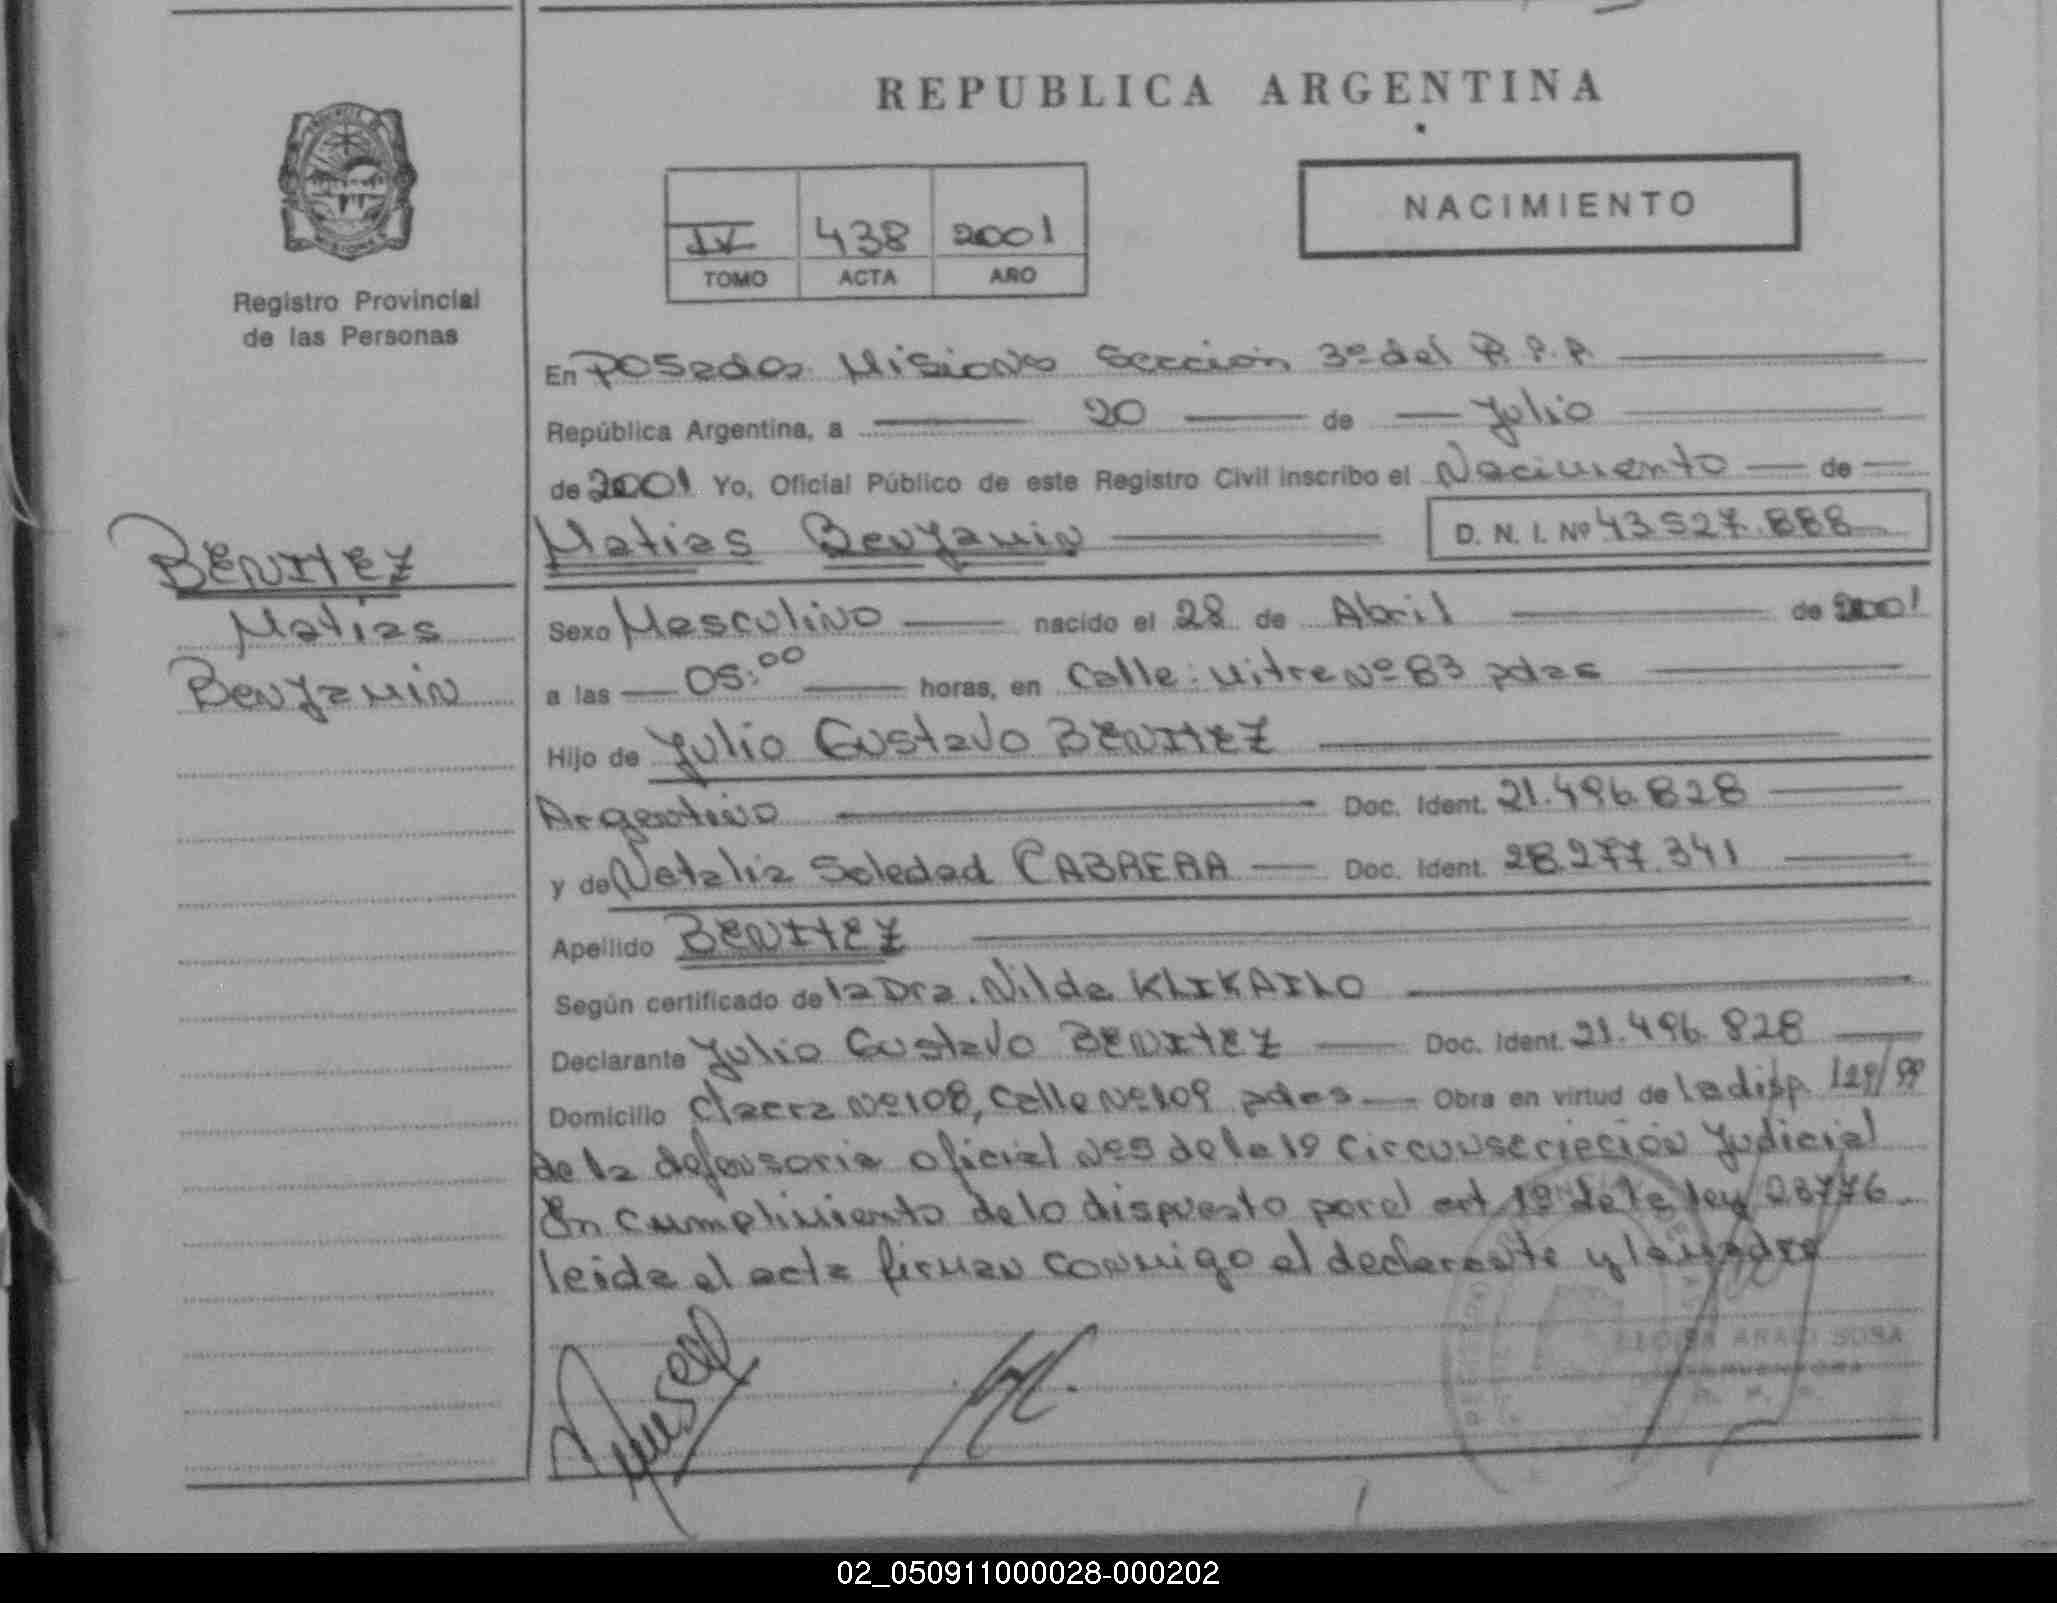 REPUBLICA ARGENTINA
NACIMIENTO
IV 438 2001
TOMO ACTA AÑO
Registro Provincial
de las Personas
En Posadas Misiones Sección 3º del R.P.P.
República Argentina, a 20 de Julio
de 2001 Yo, Oficial Público de este Registro Civil inscribo el Nacimiento de
Matias Benjamin D. N. I. Nº 43.527.888
BENITEZ
Matias
Benjamin
Sexo Masculino nacido el 28 de Abril de 2001
a las 05:00 horas, en Calle: Mitre Nº 83 pdas
Hijo de Julio Gustavo BENITEZ
Argentino Doc. Ident. 21.496.828
y de Natalia Soledad CABRERA Doc. Ident. 28.277.341
Apellido BENITEZ
Según certificado de la Dra. Nilda KLIKAILO
Declarante Julio Gustavo BENITEZ Doc. Ident. 21.496.828
Domicilio Chacra Nº 108, Calle Nº 109 pdas Obra en virtud de la disp. 129/99
de la defensoria oficial Nº 5 de la 1º Circunscripción Judicial
En cumplimiento de lo dispuesto por el art 1º de la ley 23776
leida el acta firman conmigo el declarante y la madre
ARACI SOSA
02_050911000028-000202